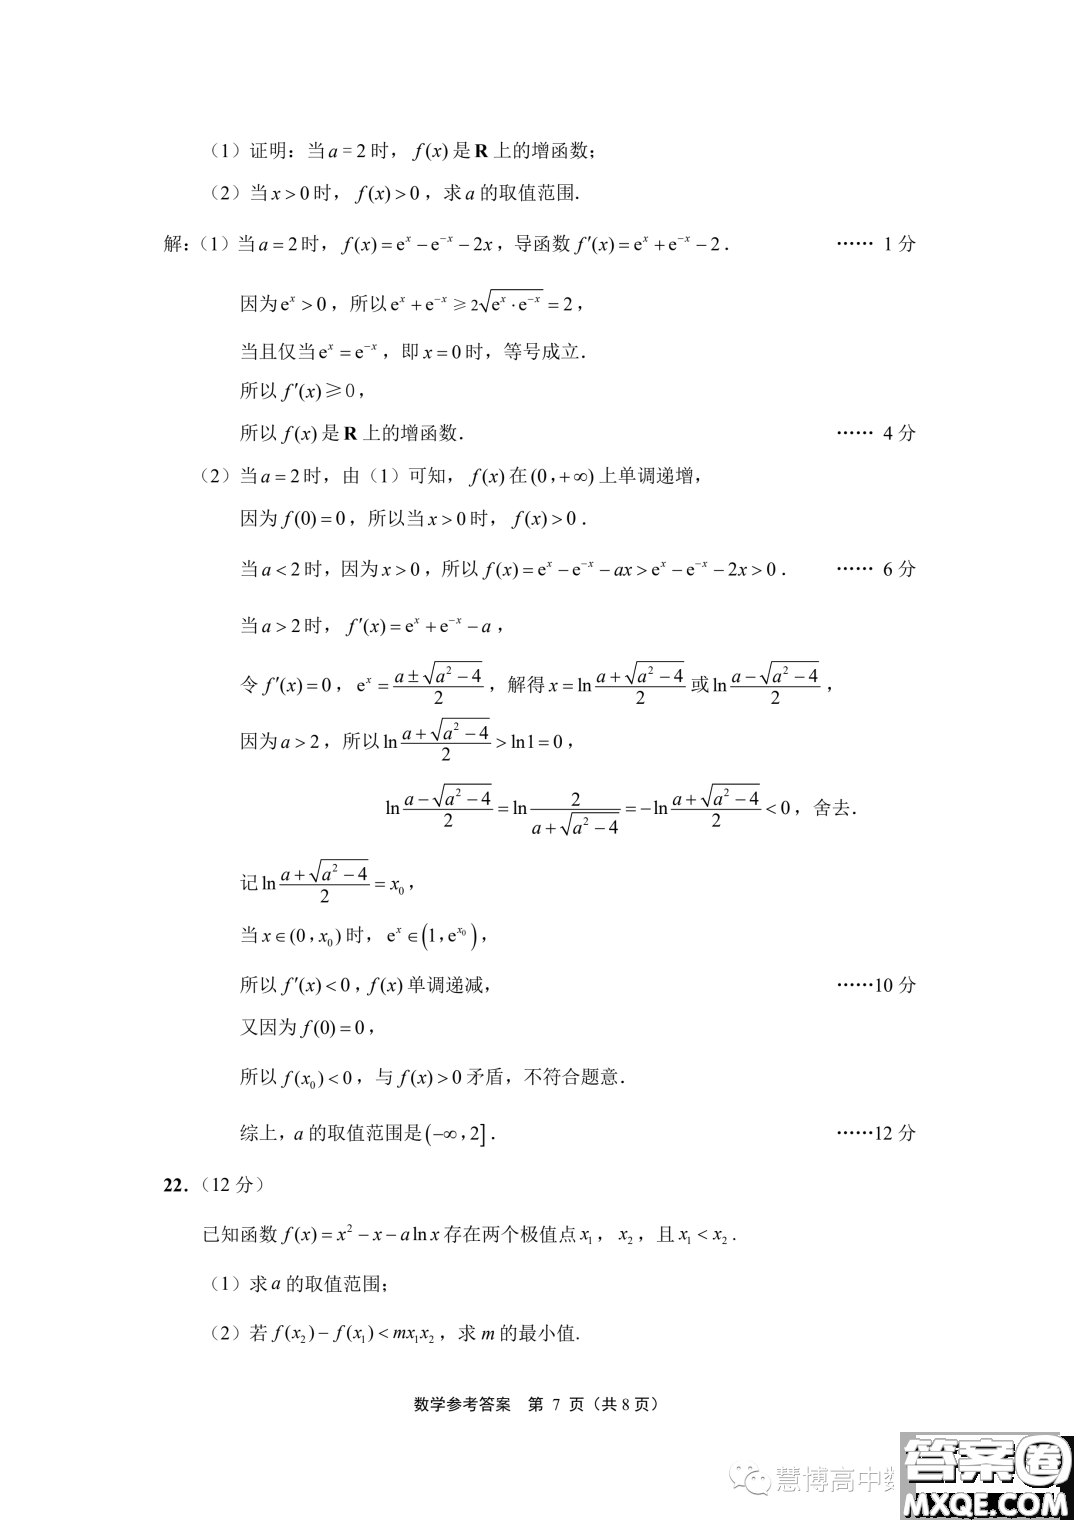 （1）证明：当 a = 2 时， f(x) 是 R 上的增函数；
（2）当 x > 0 时， f(x) > 0 ，求 a 的取值范围.
解：（1）当 a = 2 时， f(x) = eˣ − e⁻ˣ − 2x ，导函数 f′(x) = eˣ + e⁻ˣ − 2 . …… 1 分
因为 eˣ > 0 ，所以 eˣ + e⁻ˣ ≥ 2√(eˣ · e⁻ˣ) = 2 ，
当且仅当 eˣ = e⁻ˣ ，即 x = 0 时，等号成立.
所以 f′(x) ≥ 0 ，
所以 f(x) 是 R 上的增函数. …… 4 分
（2）当 a = 2 时，由（1）可知， f(x) 在 (0，+∞) 上单调递增，
因为 f(0) = 0 ，所以当 x > 0 时， f(x) > 0 .
当 a < 2 时，因为 x > 0 ，所以 f(x) = eˣ − e⁻ˣ − ax > eˣ − e⁻ˣ − 2x > 0 . …… 6 分
当 a > 2 时， f′(x) = eˣ + e⁻ˣ − a ，
令 f′(x) = 0 ， eˣ = (a ± √(a² − 4))/2 ，解得 x = ln (a + √(a² − 4))/2 或 ln (a − √(a² − 4))/2 ，
因为 a > 2 ，所以 ln (a + √(a² − 4))/2 > ln1 = 0 ，
ln (a − √(a² − 4))/2 = ln 2/(a + √(a² − 4)) = −ln (a + √(a² − 4))/2 < 0 ，舍去.
记 ln (a + √(a² − 4))/2 = x₀ ，
当 x ∈ (0，x₀) 时， eˣ ∈ (1，e^{x₀}) ，
所以 f′(x) < 0 ，f(x) 单调递减， ……10 分
又因为 f(0) = 0 ，
所以 f(x₀) < 0 ，与 f(x) > 0 矛盾，不符合题意.
综上，a 的取值范围是 (−∞，2] . ……12 分
22．（12 分）
已知函数 f(x) = x² − x − a ln x 存在两个极值点 x₁ ， x₂ ，且 x₁ < x₂ .
（1）求 a 的取值范围；
（2）若 f(x₂) − f(x₁) < mx₁x₂ ，求 m 的最小值.
数学参考答案 第 7 页（共 8 页）
慧博高中数
答案圈
MXQE.COM